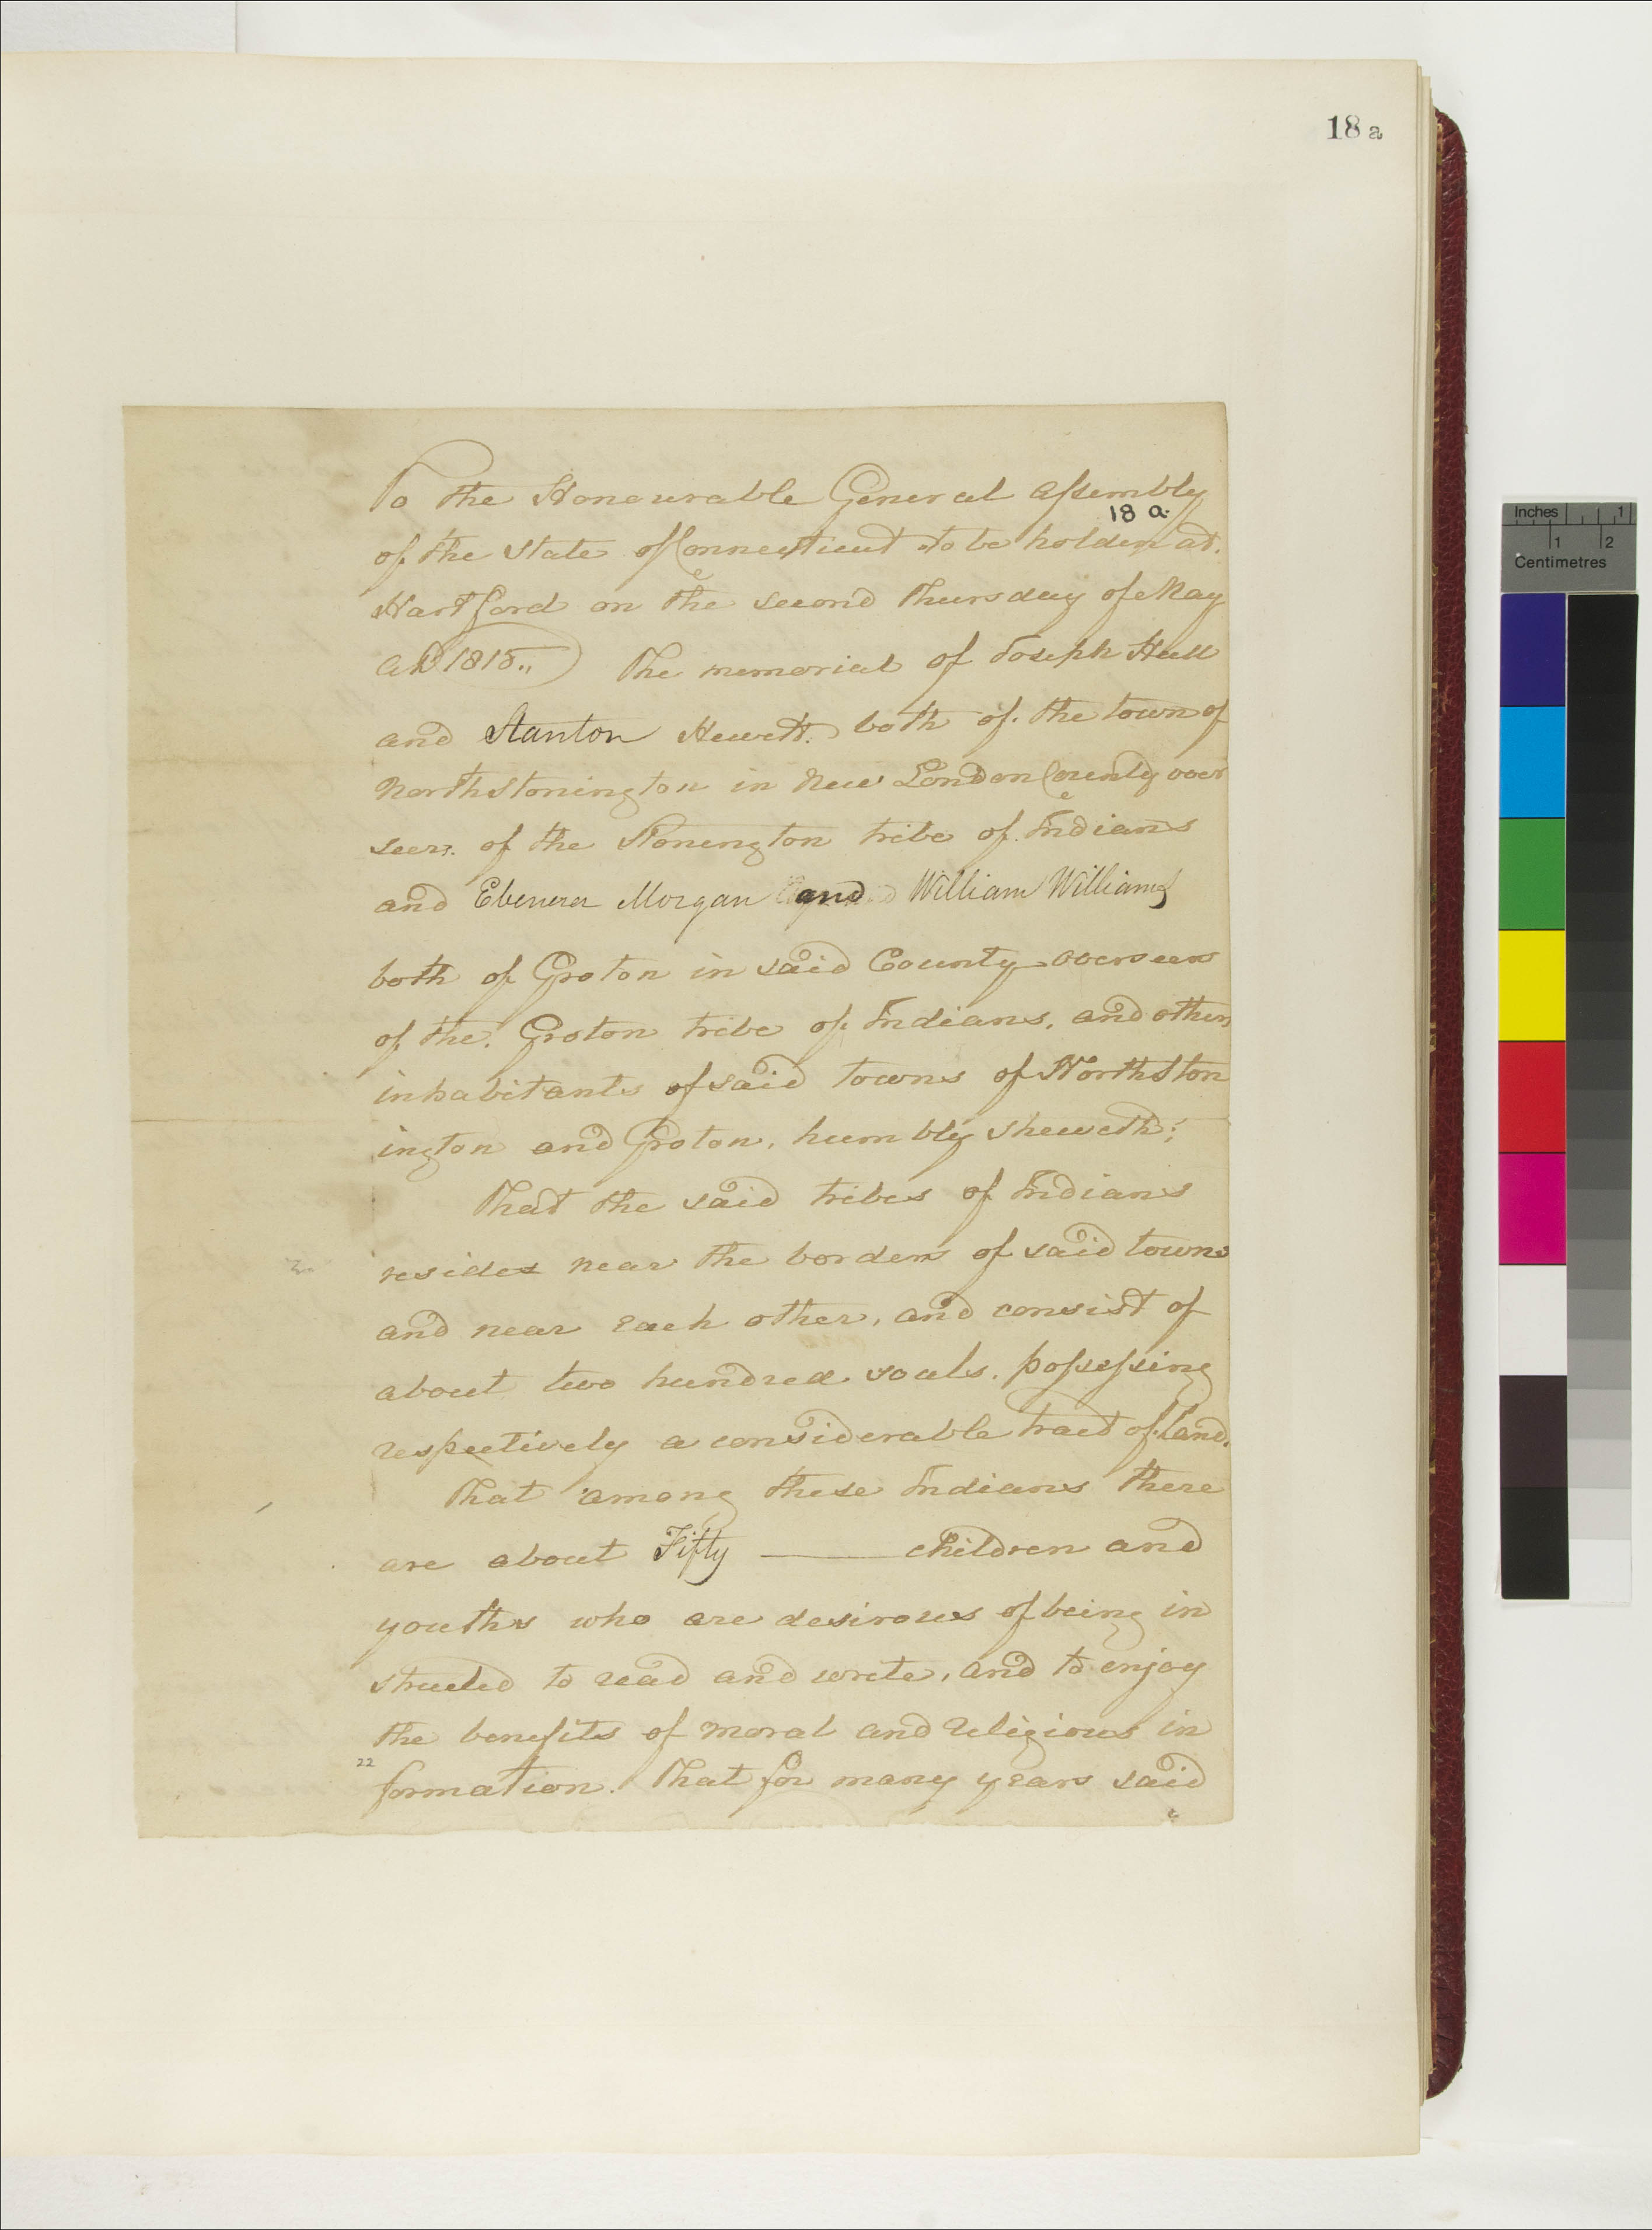 18 a
To the Honourable General Assembly
18 a.
of the State of Connecticut to be holden at.
Hartford on the second Thursday of May
AD 1815.,) The memorial of Joseph Hull
and Stanton Hewett. both of the town of
Northstonington in New London County over
seers. of the Stonington tribe of Indians
and Ebenezer Morgan and William Williams
both of Groton in said County overseers
of the Groton tribe of Indians, and others
inhabitants of said towns of Northston
ington and Groton, humbly sheweth;
That the said tribes of Indians
resides near the borders of said towns
and near each other, and consist of
about two hundred souls. possessing
respectively a considerable tract of Land.
That among these Indians there
are about Fifty —— children and
youths who are desirous of being in
structed to read and write, and to enjoy
the benefits of moral and religious in
22
formation. That for many years said
Inches 1
1 2
Centimetres